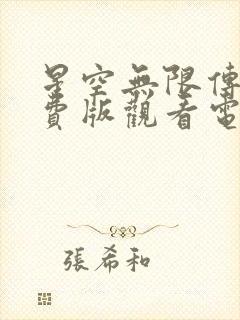 星空無限傳
費版觀看電
張希和